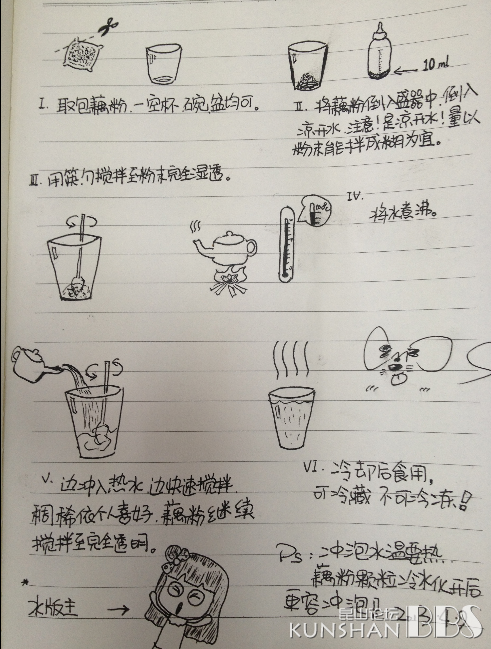 I. 取包藕粉,一空杯,碗,盆均可。
10ml
II. 将藕粉倒入盛器中,倒入
凉开水,注意!是凉开水!量以
粉末能拌成糊为宜。
III. 用筷勺搅拌至粉末完全湿透。
IV.
将水煮沸。
V. 边冲入热水边快速搅拌
稠稀依个人喜好,藕粉继续
搅拌至完全透明。
VI. 冷却后食用,
可冷藏 不可冷冻!
Ps: 冲泡水温要热
藕粉颗粒冷水化开后
更容冲泡
水版主
昆山论坛
KUNSHAN BBS